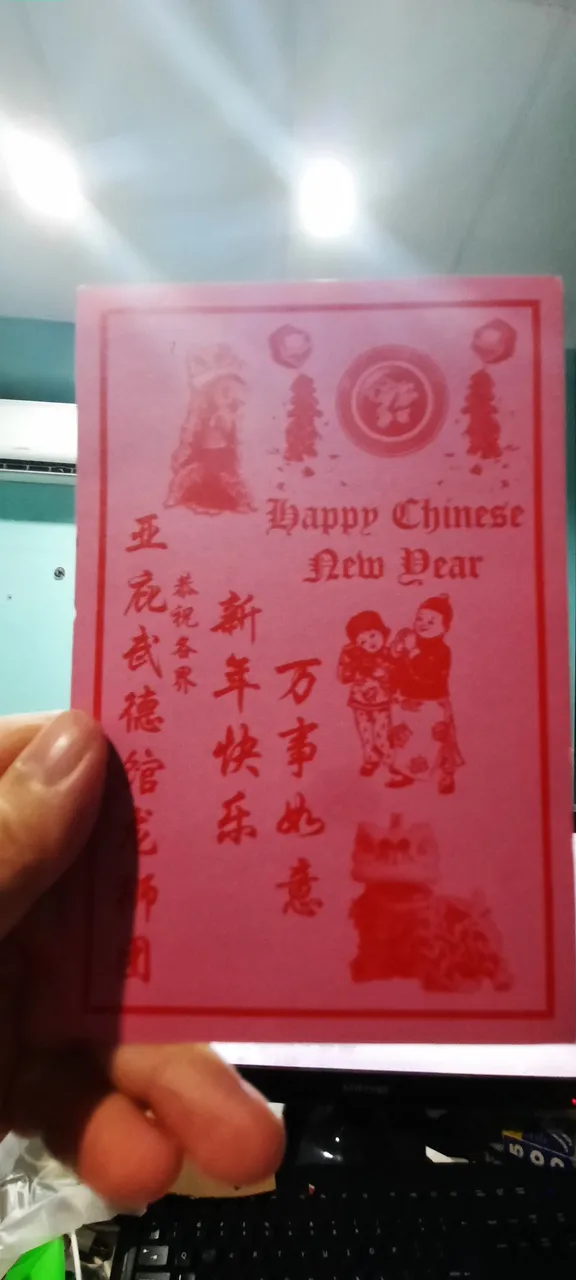 Happy Chinese
New Year
万事如意
新年快乐
恭祝各界
亚庇武德馆龙狮团